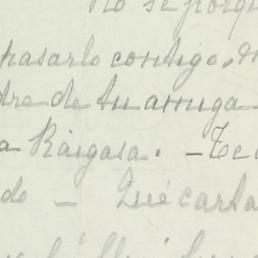 No se porqu
pasarlo contigo, m
tre de tu amiga
a Raigasa. - Te
do - Qué carta